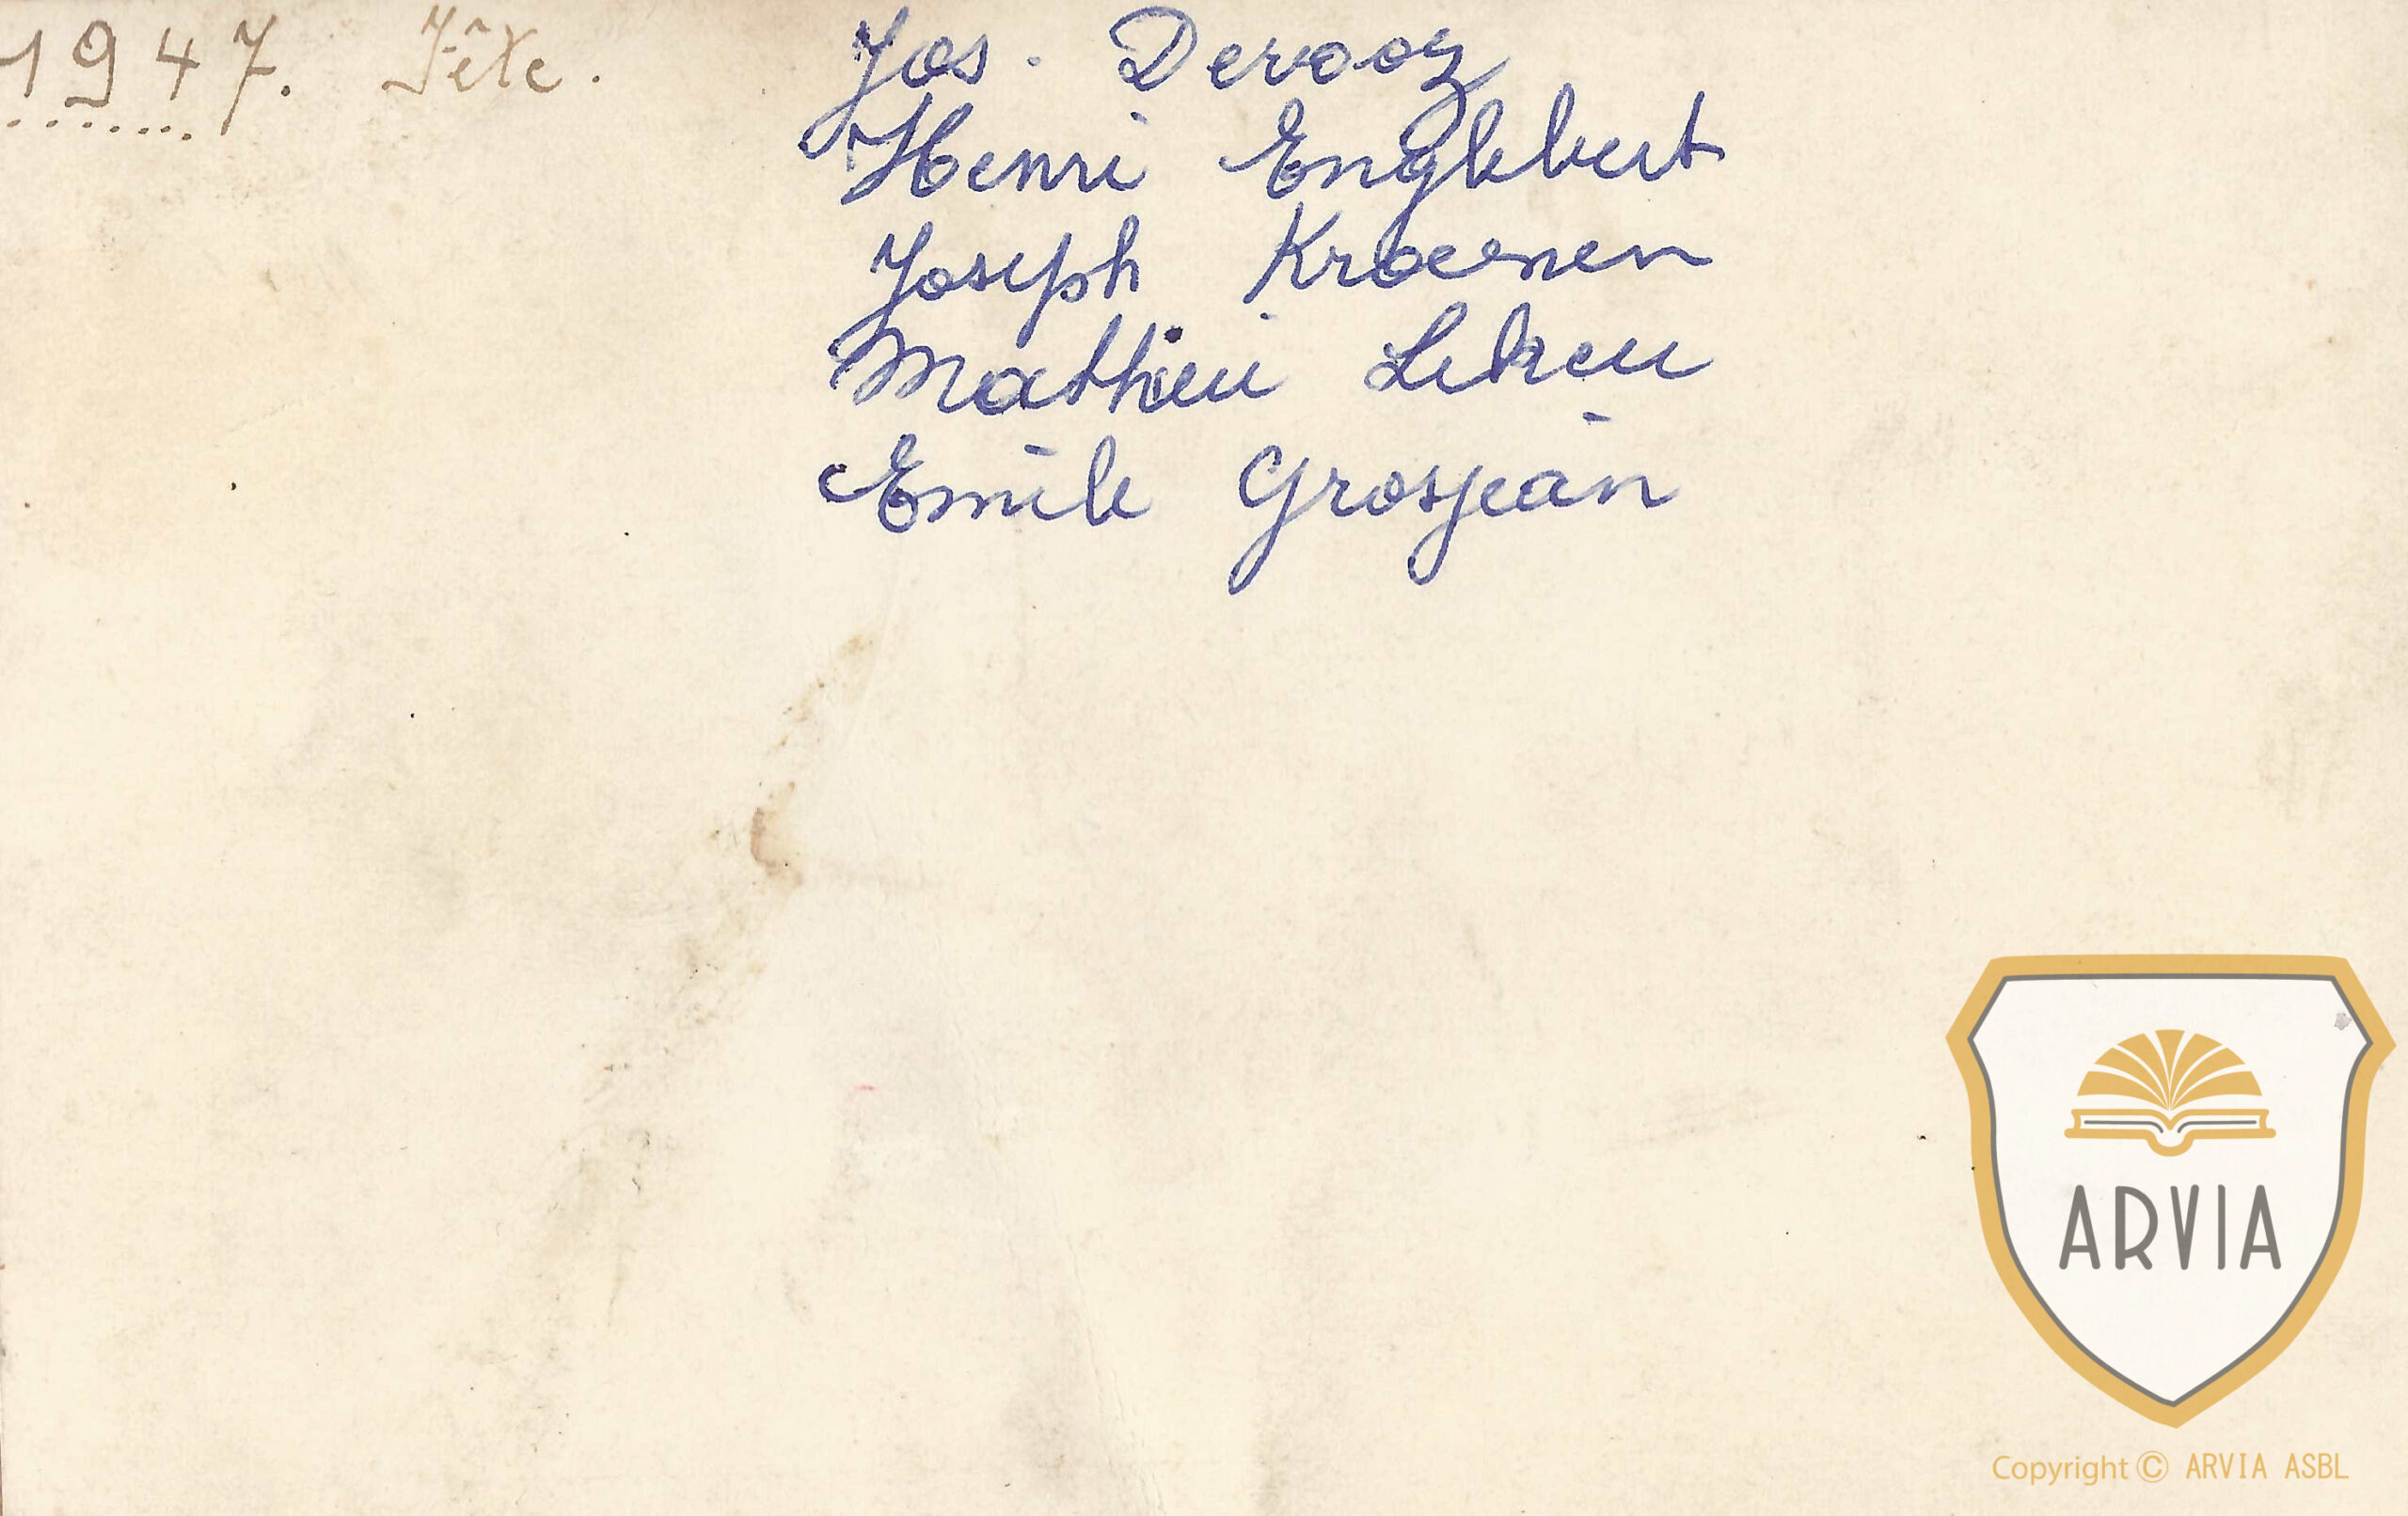 1947. Fête.
Jos. Derooz
Henri Englebert
Joseph Kroenen
Mathieu Lekeu
Emile Grosjean
ARVIA
Copyright © ARVIA ASBL